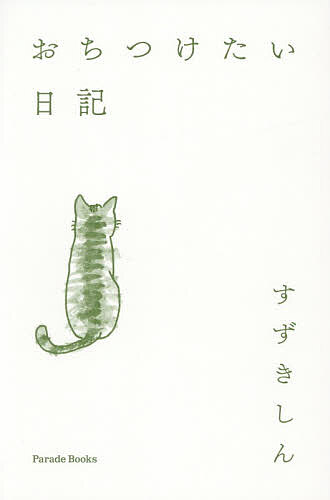 おちつけたい
日記
すずきしん
Parade Books